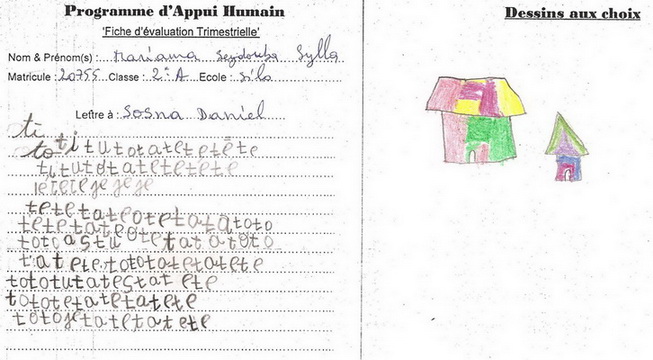 Programme d'Appui Humain
'Fiche d'évaluation Trimestrielle'
Nom & Prénom(s) : Mariama Seydouba Sylla
Matricule : 20755 Classe : 2e A Ecole : Sila
Lettre à : Sosna Daniel
ti
to ti tutotatetetête
titutotatetetete
tetetateotetotatoto
tetetateotetatatoto
tatetetototatetatete
tototutatestatete
totototetatetatete
totojetatetatete
Dessins aux choix